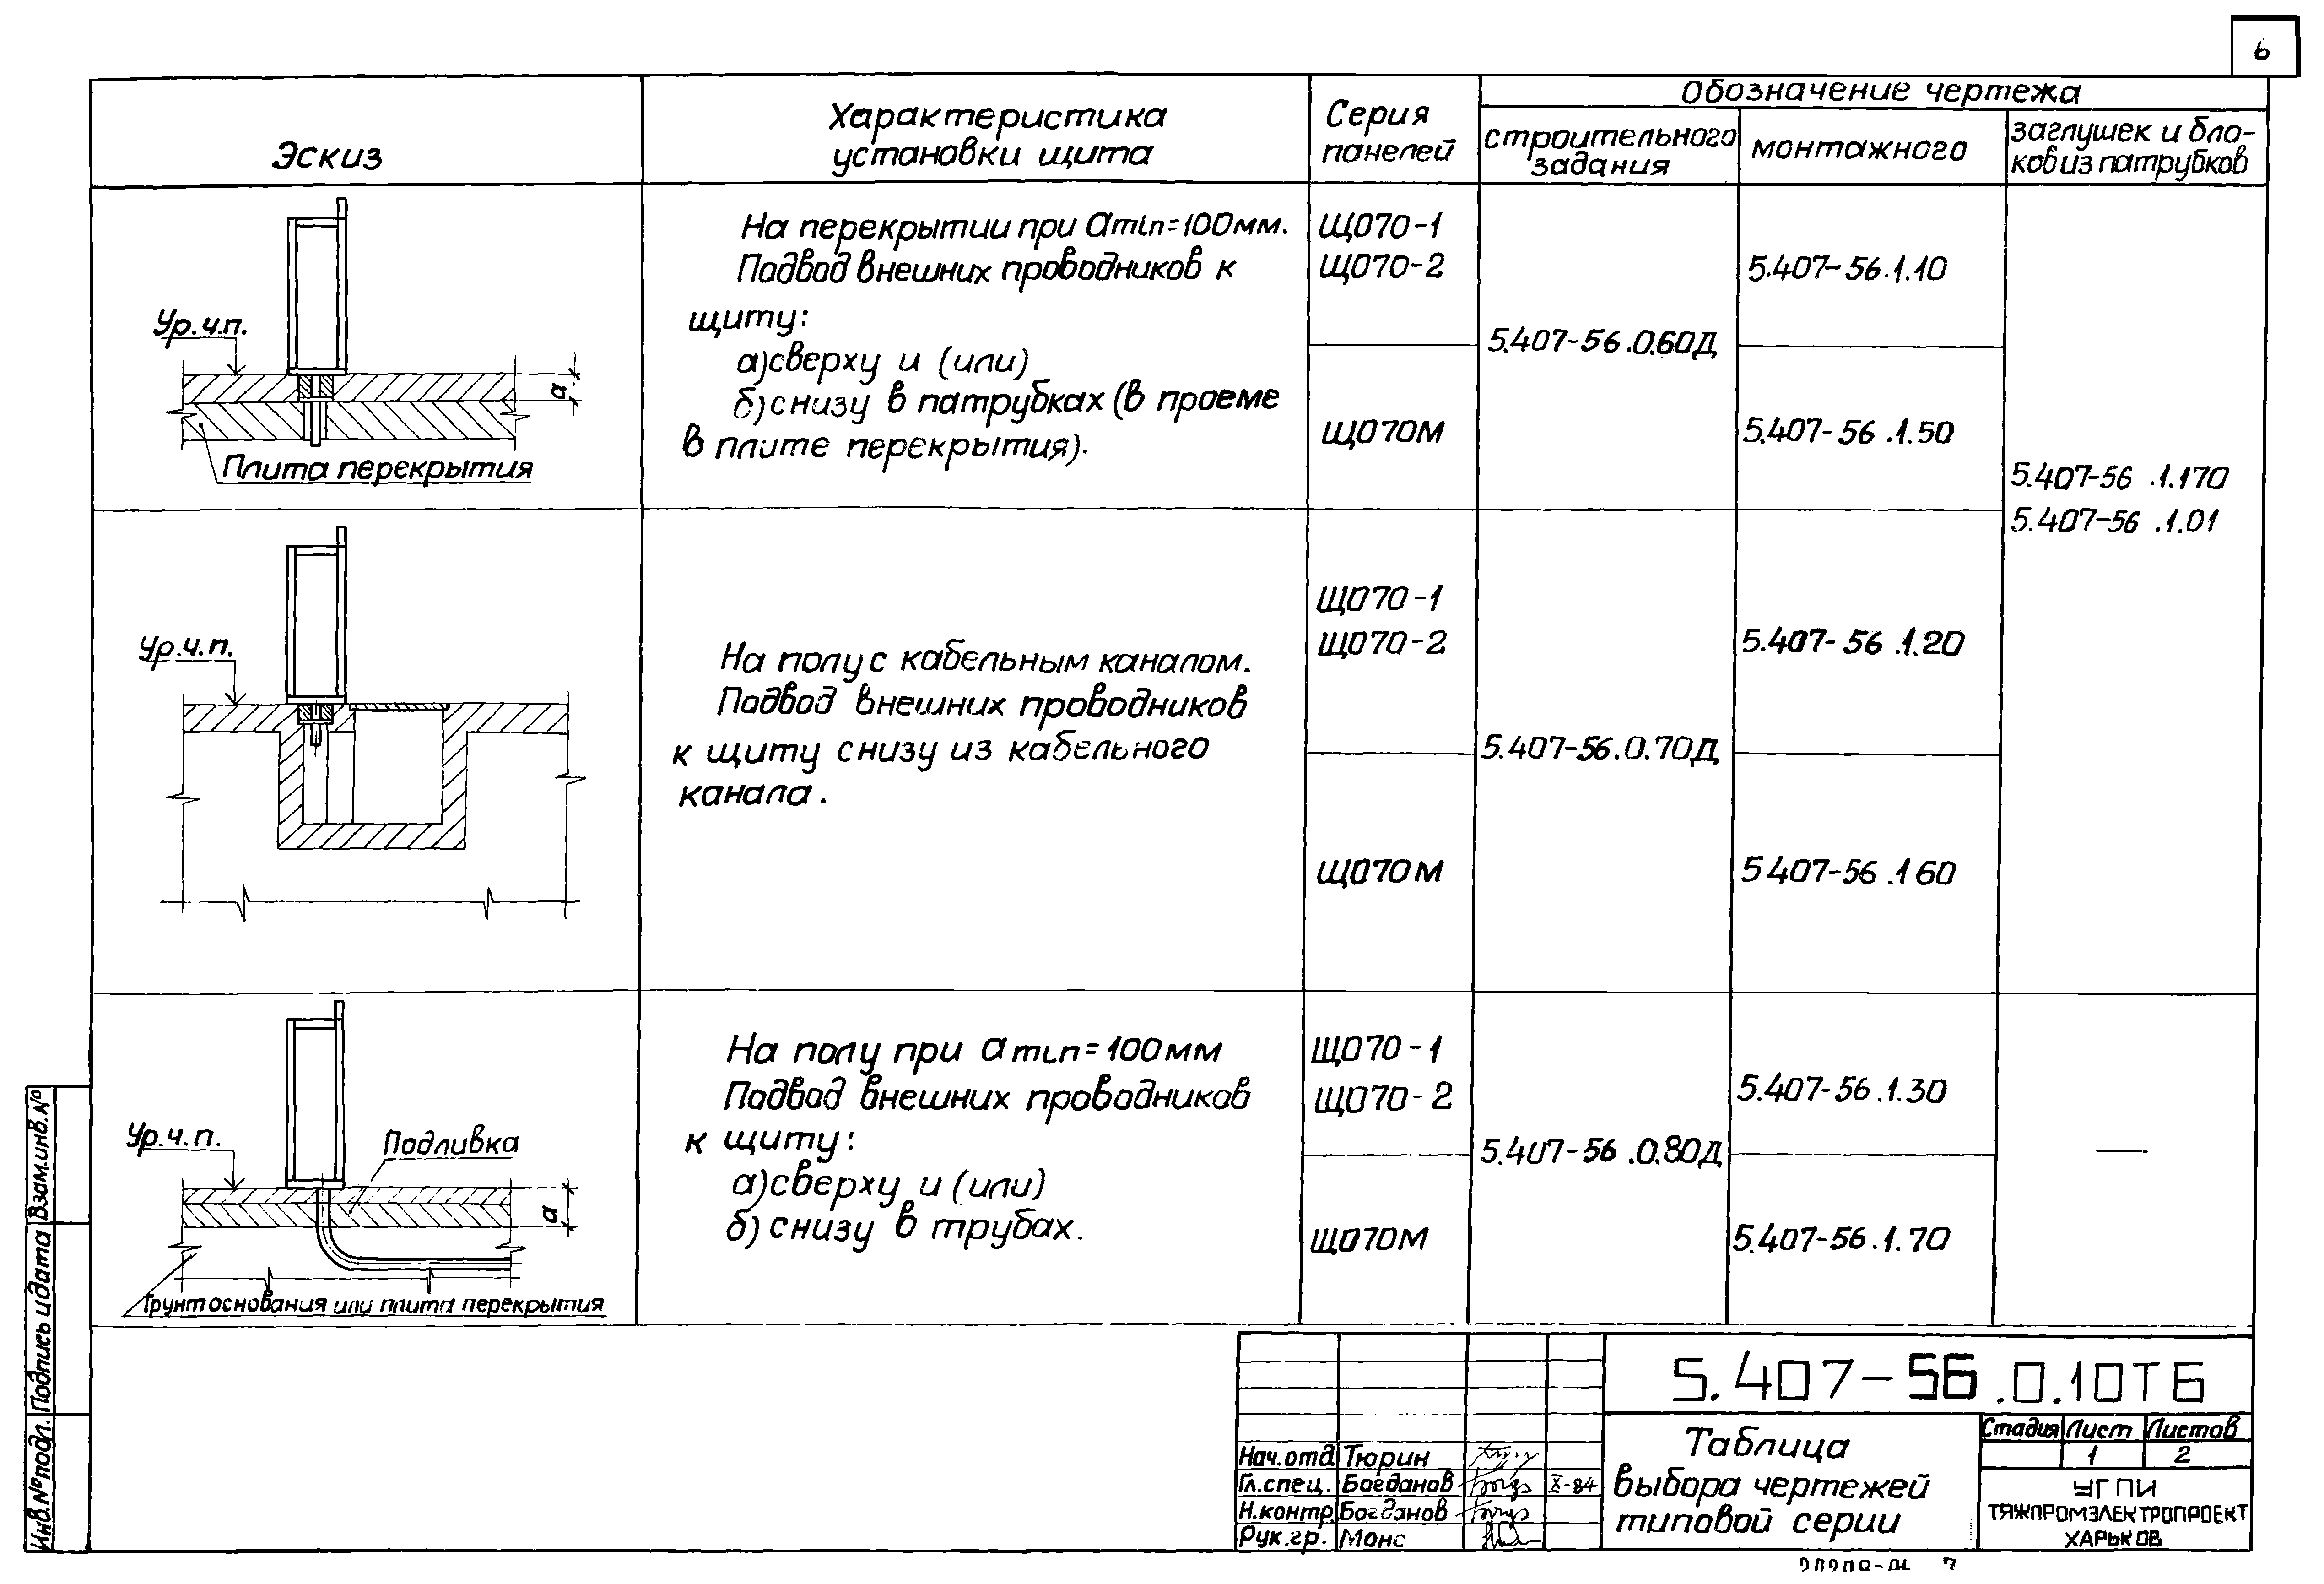 6
Эскиз
Характеристика
установки щита
Серия
панелей
Обозначение чертежа
строительного
задания
монтажного
заглушек и бло-
ков из патрубков
Ур.ч.п.
а
Плита перекрытия
На перекрытии при amin=100мм.
Подвод внешних проводников к
щиту:
а) сверху и (или)
б) снизу в патрубках (в проеме
в плите перекрытия).
ЩО70-1
ЩО70-2
ЩО70М
5.407-56.0.60Д
5.407-56.1.10
5.407-56.1.50
5.407-56.1.170
5.407-56.1.01
Ур.ч.п.
На полу с кабельным каналом.
Подвод внешних проводников
к щиту снизу из кабельного
канала.
ЩО70-1
ЩО70-2
ЩО70М
5.407-56.0.70Д
5.407-56.1.20
5 407-56.1 60
Ур.ч.п.
Подливка
а
Грунт основания или плита перекрытия
На полу при amin=100мм
Подвод внешних проводников
к щиту:
а) сверху и (или)
б) снизу в трубах.
ЩО70-1
ЩО70-2
ЩО70М
5.407-56.0.80Д
5.407-56.1.30
5.407-56.1.70
—
Инв.№подл. Подпись и дата Взам.инв.№
5.407-56.0.10ТБ
Нач.отд Тюрин
Гл.спец. Богданов X-84
Н.контр. Богданов
Рук.гр. Монс
Таблица
выбора чертежей
типовой серии
Стадия Лист Листов
1 2
УГПИ
ТЯЖПРОМЭЛЕКТРОПРОЕКТ
ХАРЬКОВ
7